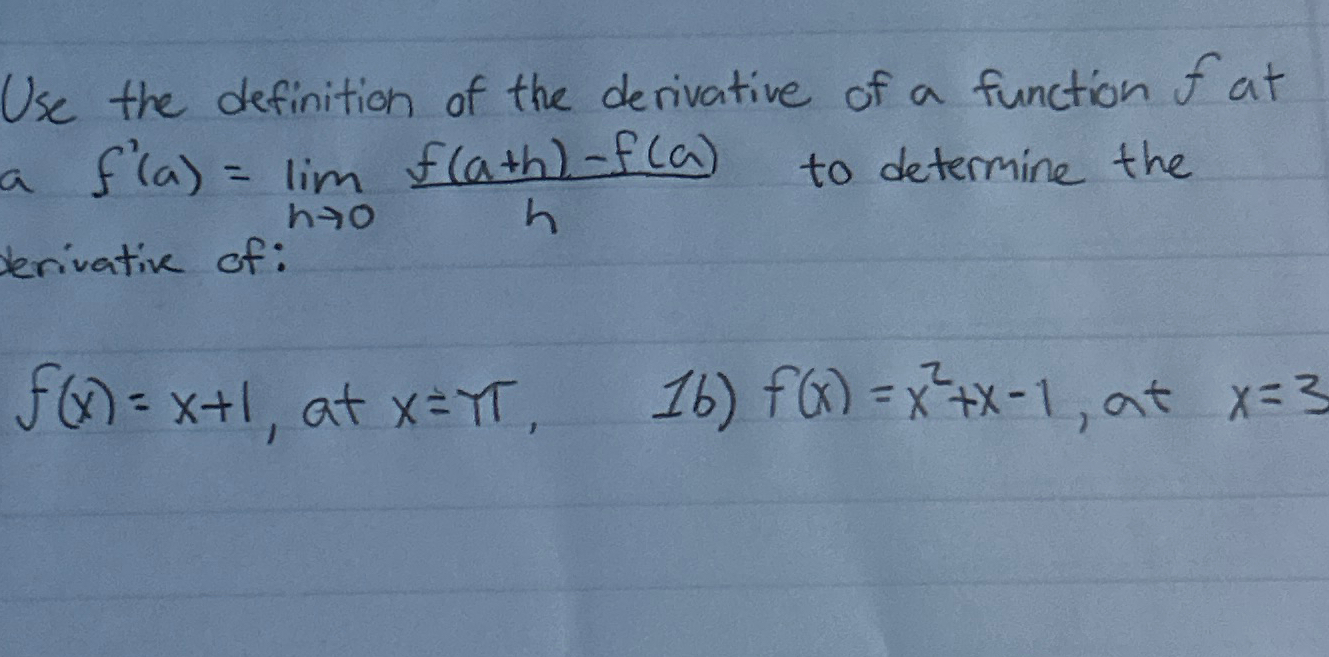 Use the definition of the derivative of a function f at
a f'(a) = lim h→0 f(a+h)-f(a) / h to determine the
derivative of:
f(x) = x+1, at x=π, 1b) f(x) = x²+x-1, at x=3